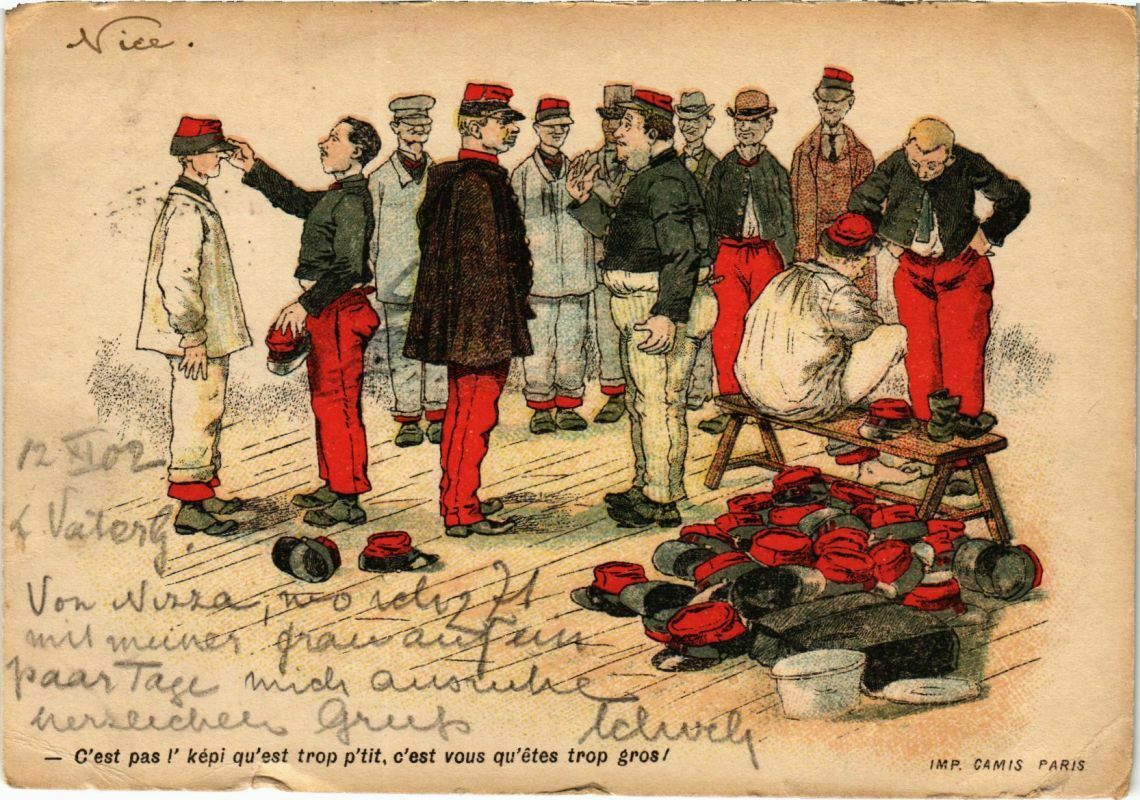 Nice.
12 XI 02
L Vater
Von Nizza, wo ich zt
mit meiner Frau auf ein
paar Tage mich ausruhe
herzlichen Gruß
— C'est pas l' képi qu'est trop p'tit, c'est vous qu'êtes trop gros!
IMP. CAMIS PARIS